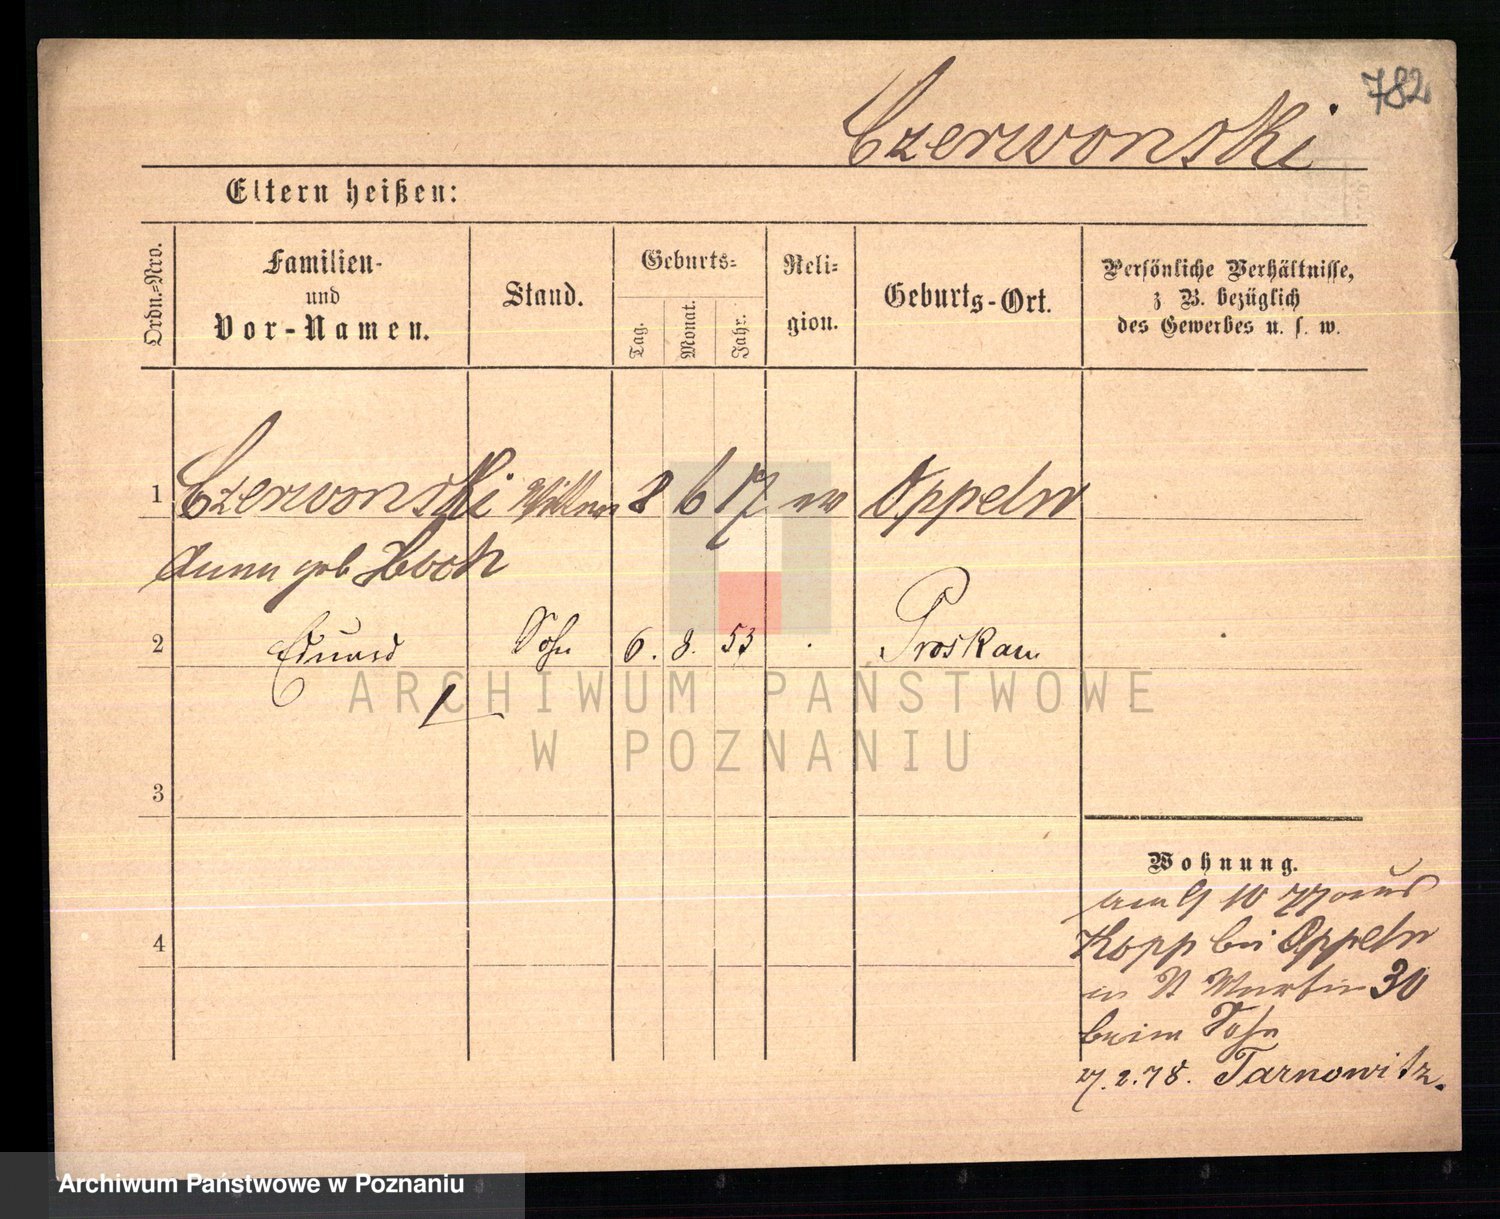 782
Czerwonski
Eltern heißen:
Ordn.=Nro.
Familien-
und
Vor-Namen.
Stand.
Geburts=
Tag.
Monat.
Jahr.
Reli=
gion.
Geburts-Ort.
Persönliche Verhältnisse,
z B. bezüglich
des Gewerbes u. s. w.
1 Czerwonski 8 6 17 Oppeln
Anna geb Hoch
2 Eduard Sohn 6. 8. 53 Proskau
3
4
Wohnung.
am 9 10 77 aus
Kopp bei Oppeln
n St Martin 30
beim Sohn
27.2.78. Tarnowitz.
ARCHIWUM PAŃSTWOWE
W POZNANIU
Archiwum Państwowe w Poznaniu